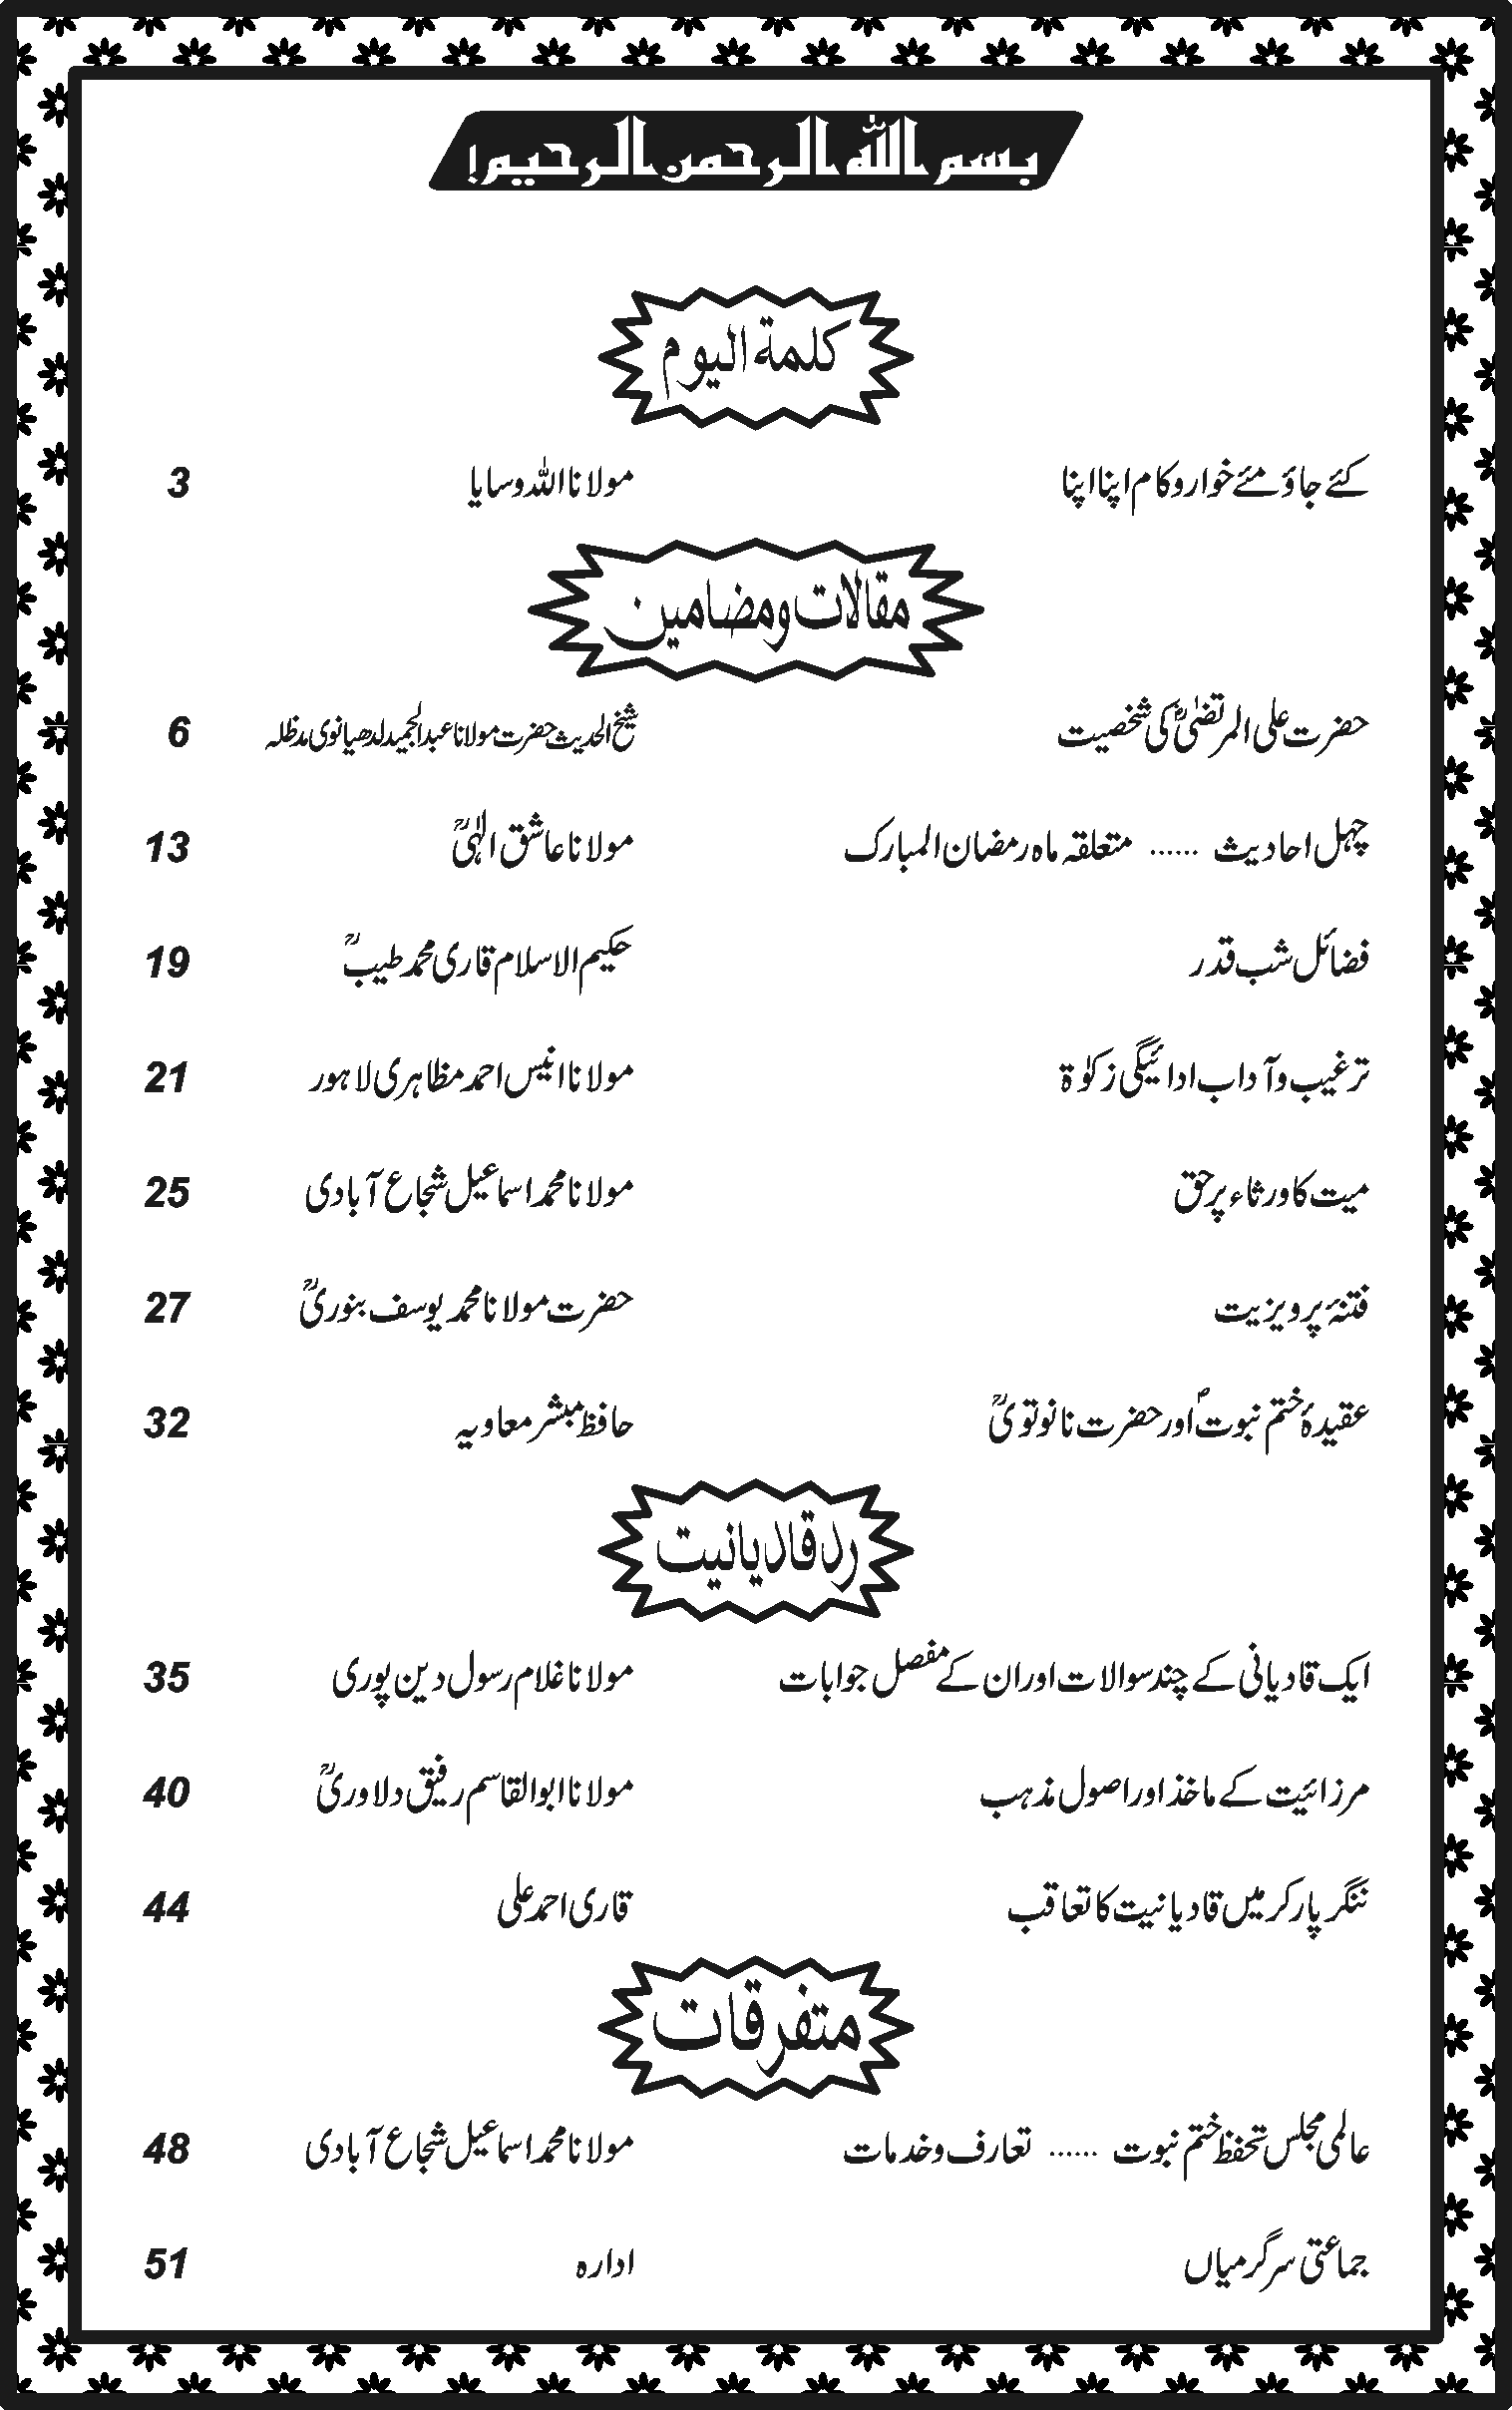 بسم الله الرحمن الرحیم!
کلمة الیوم
کئے جاؤ مئے خوارو کام اپنا اپنا مولانا اللہ وسایا 3
مقالات و مضامین
حضرت علی المرتضیٰؓ کی شخصیت شیخ الحدیث حضرت مولانا عبدالمجید لدھیانوی مدظلہ 6
چہل احادیث ...... متعلقہ ماہ رمضان المبارک مولانا عاشق الٰہیؒ 13
فضائل شب قدر حکیم الاسلام قاری محمد طیبؒ 19
ترغیب و آداب ادائیگی زکوٰۃ مولانا انیس احمد مظاہری لاہور 21
میت کا ورثاء پر حق مولانا محمد اسماعیل شجاع آبادی 25
فتنۂ پرویزیت حضرت مولانا محمد یوسف بنوریؒ 27
عقیدۂ ختم نبوتؐ اور حضرت نانوتویؒ حافظ مبشر معاویہ 32
رد قادیانیت
ایک قادیانی کے چند سوالات اور ان کے مفصل جوابات مولانا غلام رسول دین پوری 35
مرزائیت کے ماخذ اور اصول مذہب مولانا ابوالقاسم رفیق دلاوریؒ 40
ننگر پارکر میں قادیانیت کا تعاقب قاری احمد علی 44
متفرقات
عالمی مجلس تحفظ ختم نبوت ...... تعارف و خدمات مولانا محمد اسماعیل شجاع آبادی 48
جماعتی سرگرمیاں ادارہ 51